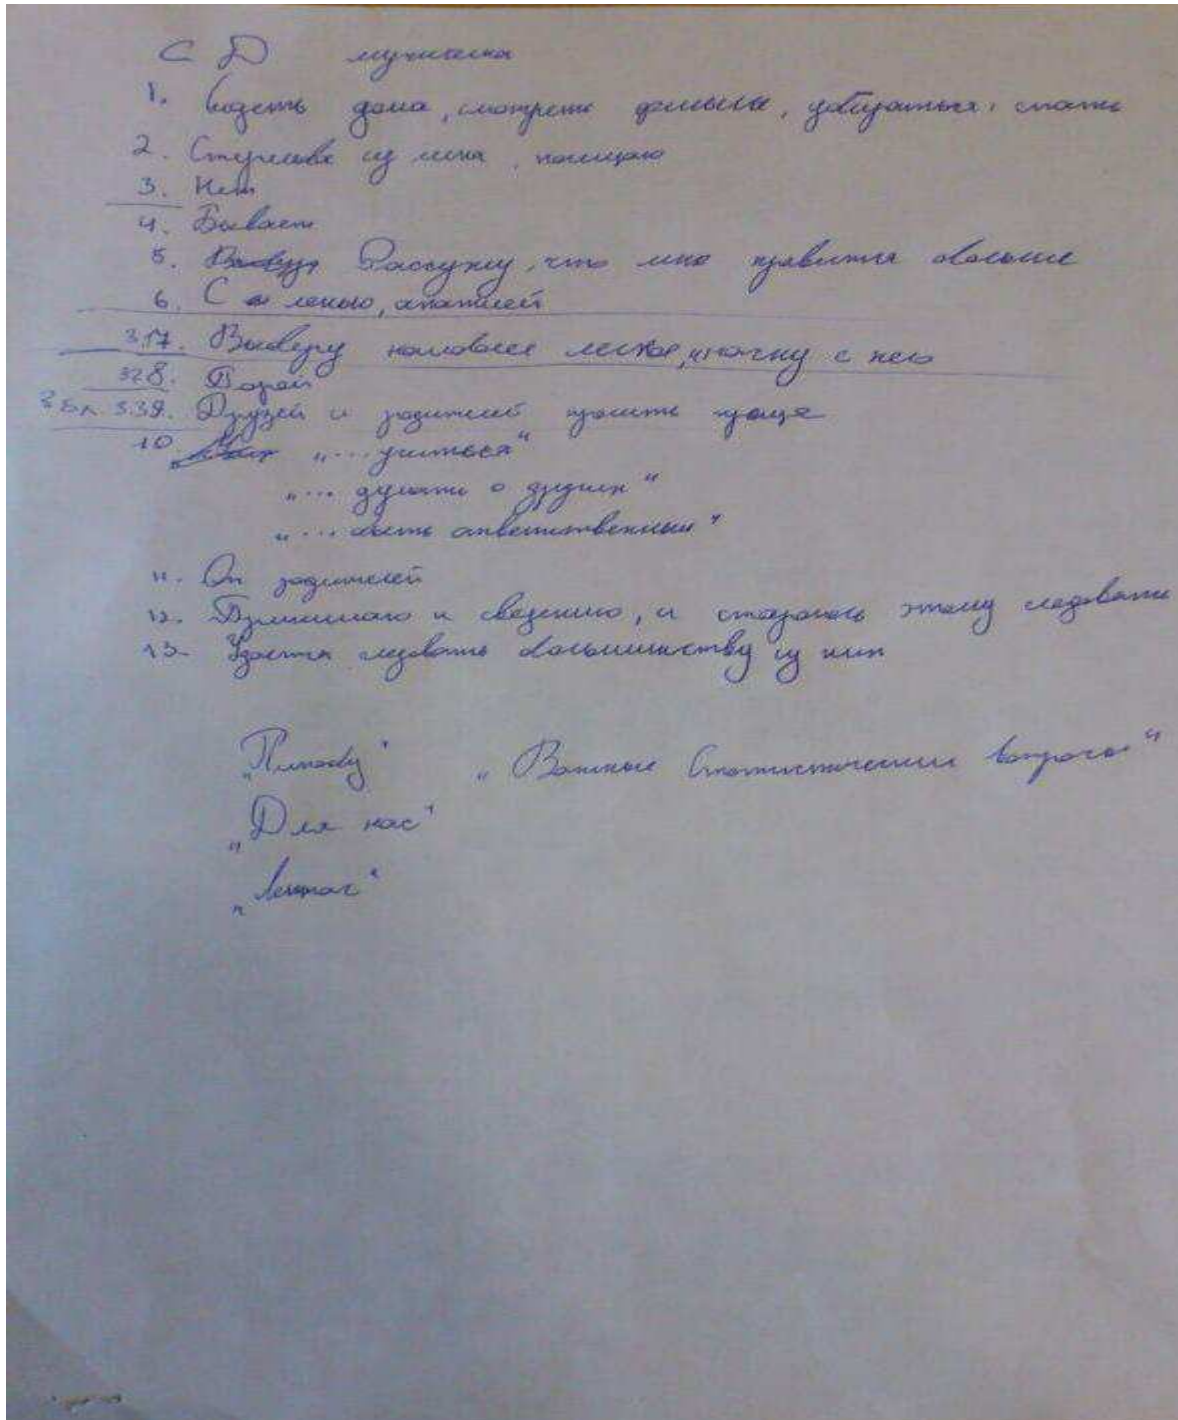 С Д мужчина
1. сидеть дома, смотреть фильмы, убираться, спать
2. из них, посещаю
3. Нет
4. Бывает
5. Рассужу, что мне нравится больше
6. С ленью, апатией
3.17. Выберу наиболее легкое, и начну с него
328. Порой
3 бл 3.39. Друзей и родителей простить проще
10. „... учиться“
„... думать о других“
„... быть ответственным“
11. От родителей
12. Принимаю к сведению, и стараюсь этому следовать
13. Удается следовать большинству из них
„Почему“ „Важные статистические вопросы“
„Для нас“